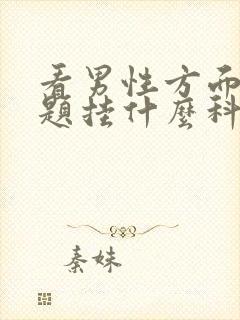 看男性方面
題挂什麼科
秦妹